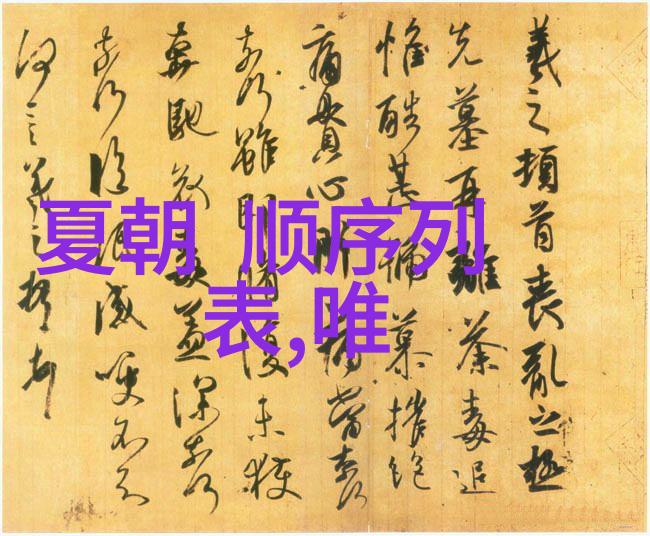 夏朝 顺序列
表,唯
羲之頓首喪亂之極
先墓再離荼毒追
惟酷甚號慕摧絶
痛貫心肝痛當奈何
奈何雖即脩復未獲
奔馳哀毒益深奈何
奈何臨紙感哽不知
何言羲之頓首頓首